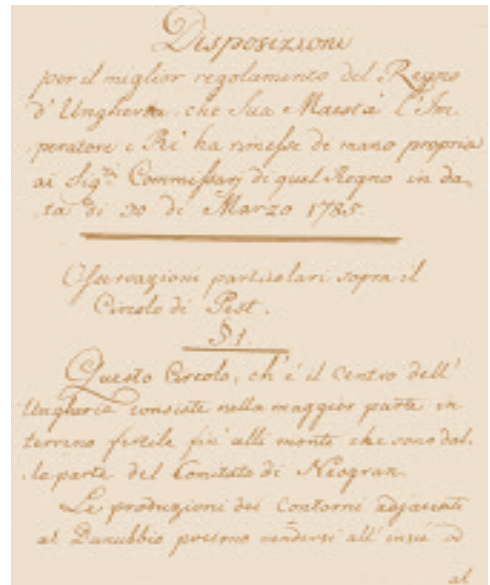 Disposizioni
per il miglior regolamento del Regno
d'Ungheria che Sua Maestà l'Im
peratore e Rè ha rimesse di mano propria
ai Sig.ri Commissarj di quel Regno in da,
ta di 30 di Marzo 1785.
Osservazioni particolari sopra il
Circolo di Pest.
§ 1.
Questo Circolo, ch'é il centro dell'
Ungheria consiste nella maggior parte in
terreno fertile fin' alli monti che sono dal,
la parte del Comitato di Néogran
Le produzioni dei contorni adjacenti
al Danubbio possono vendersi all' insù ed
al